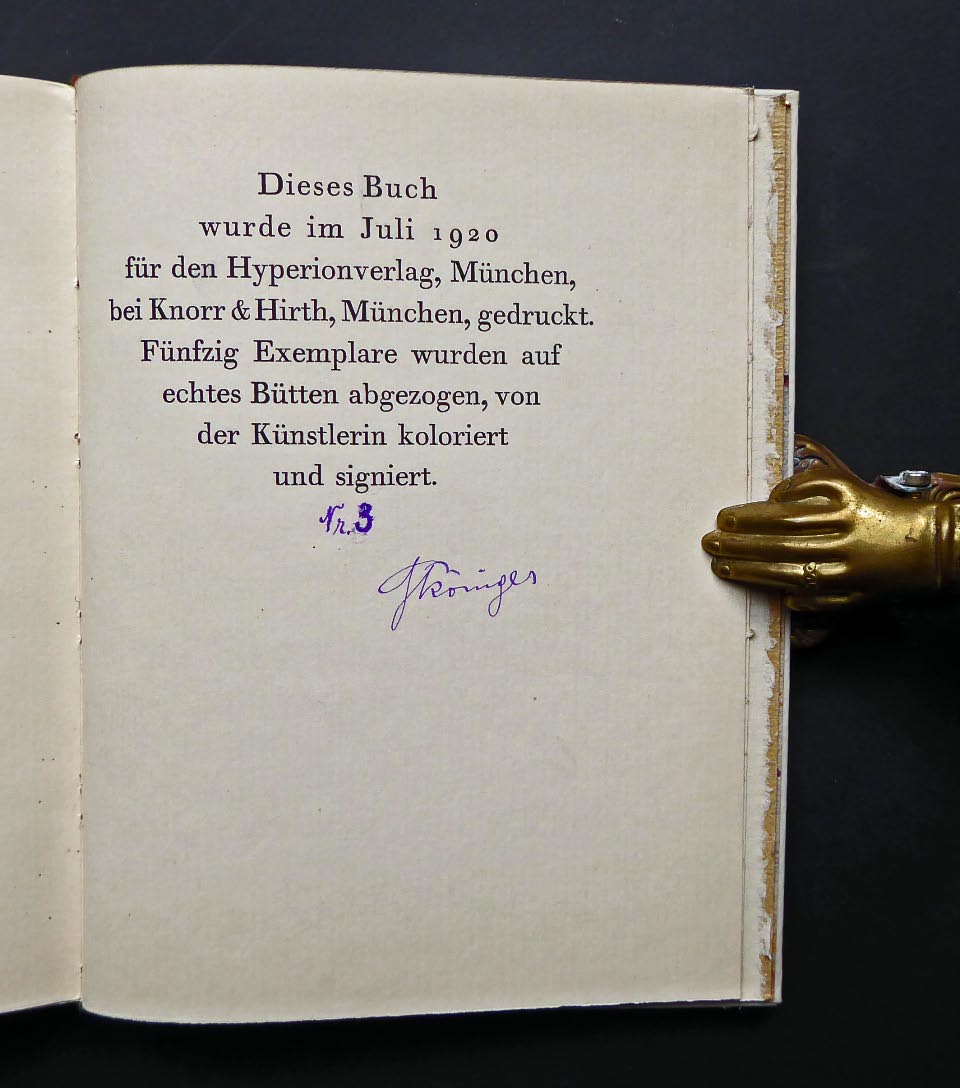 Dieses Buch
wurde im Juli 1920
für den Hyperionverlag, München,
bei Knorr & Hirth, München, gedruckt.
Fünfzig Exemplare wurden auf
echtes Bütten abgezogen, von
der Künstlerin koloriert
und signiert.
Nr. 3